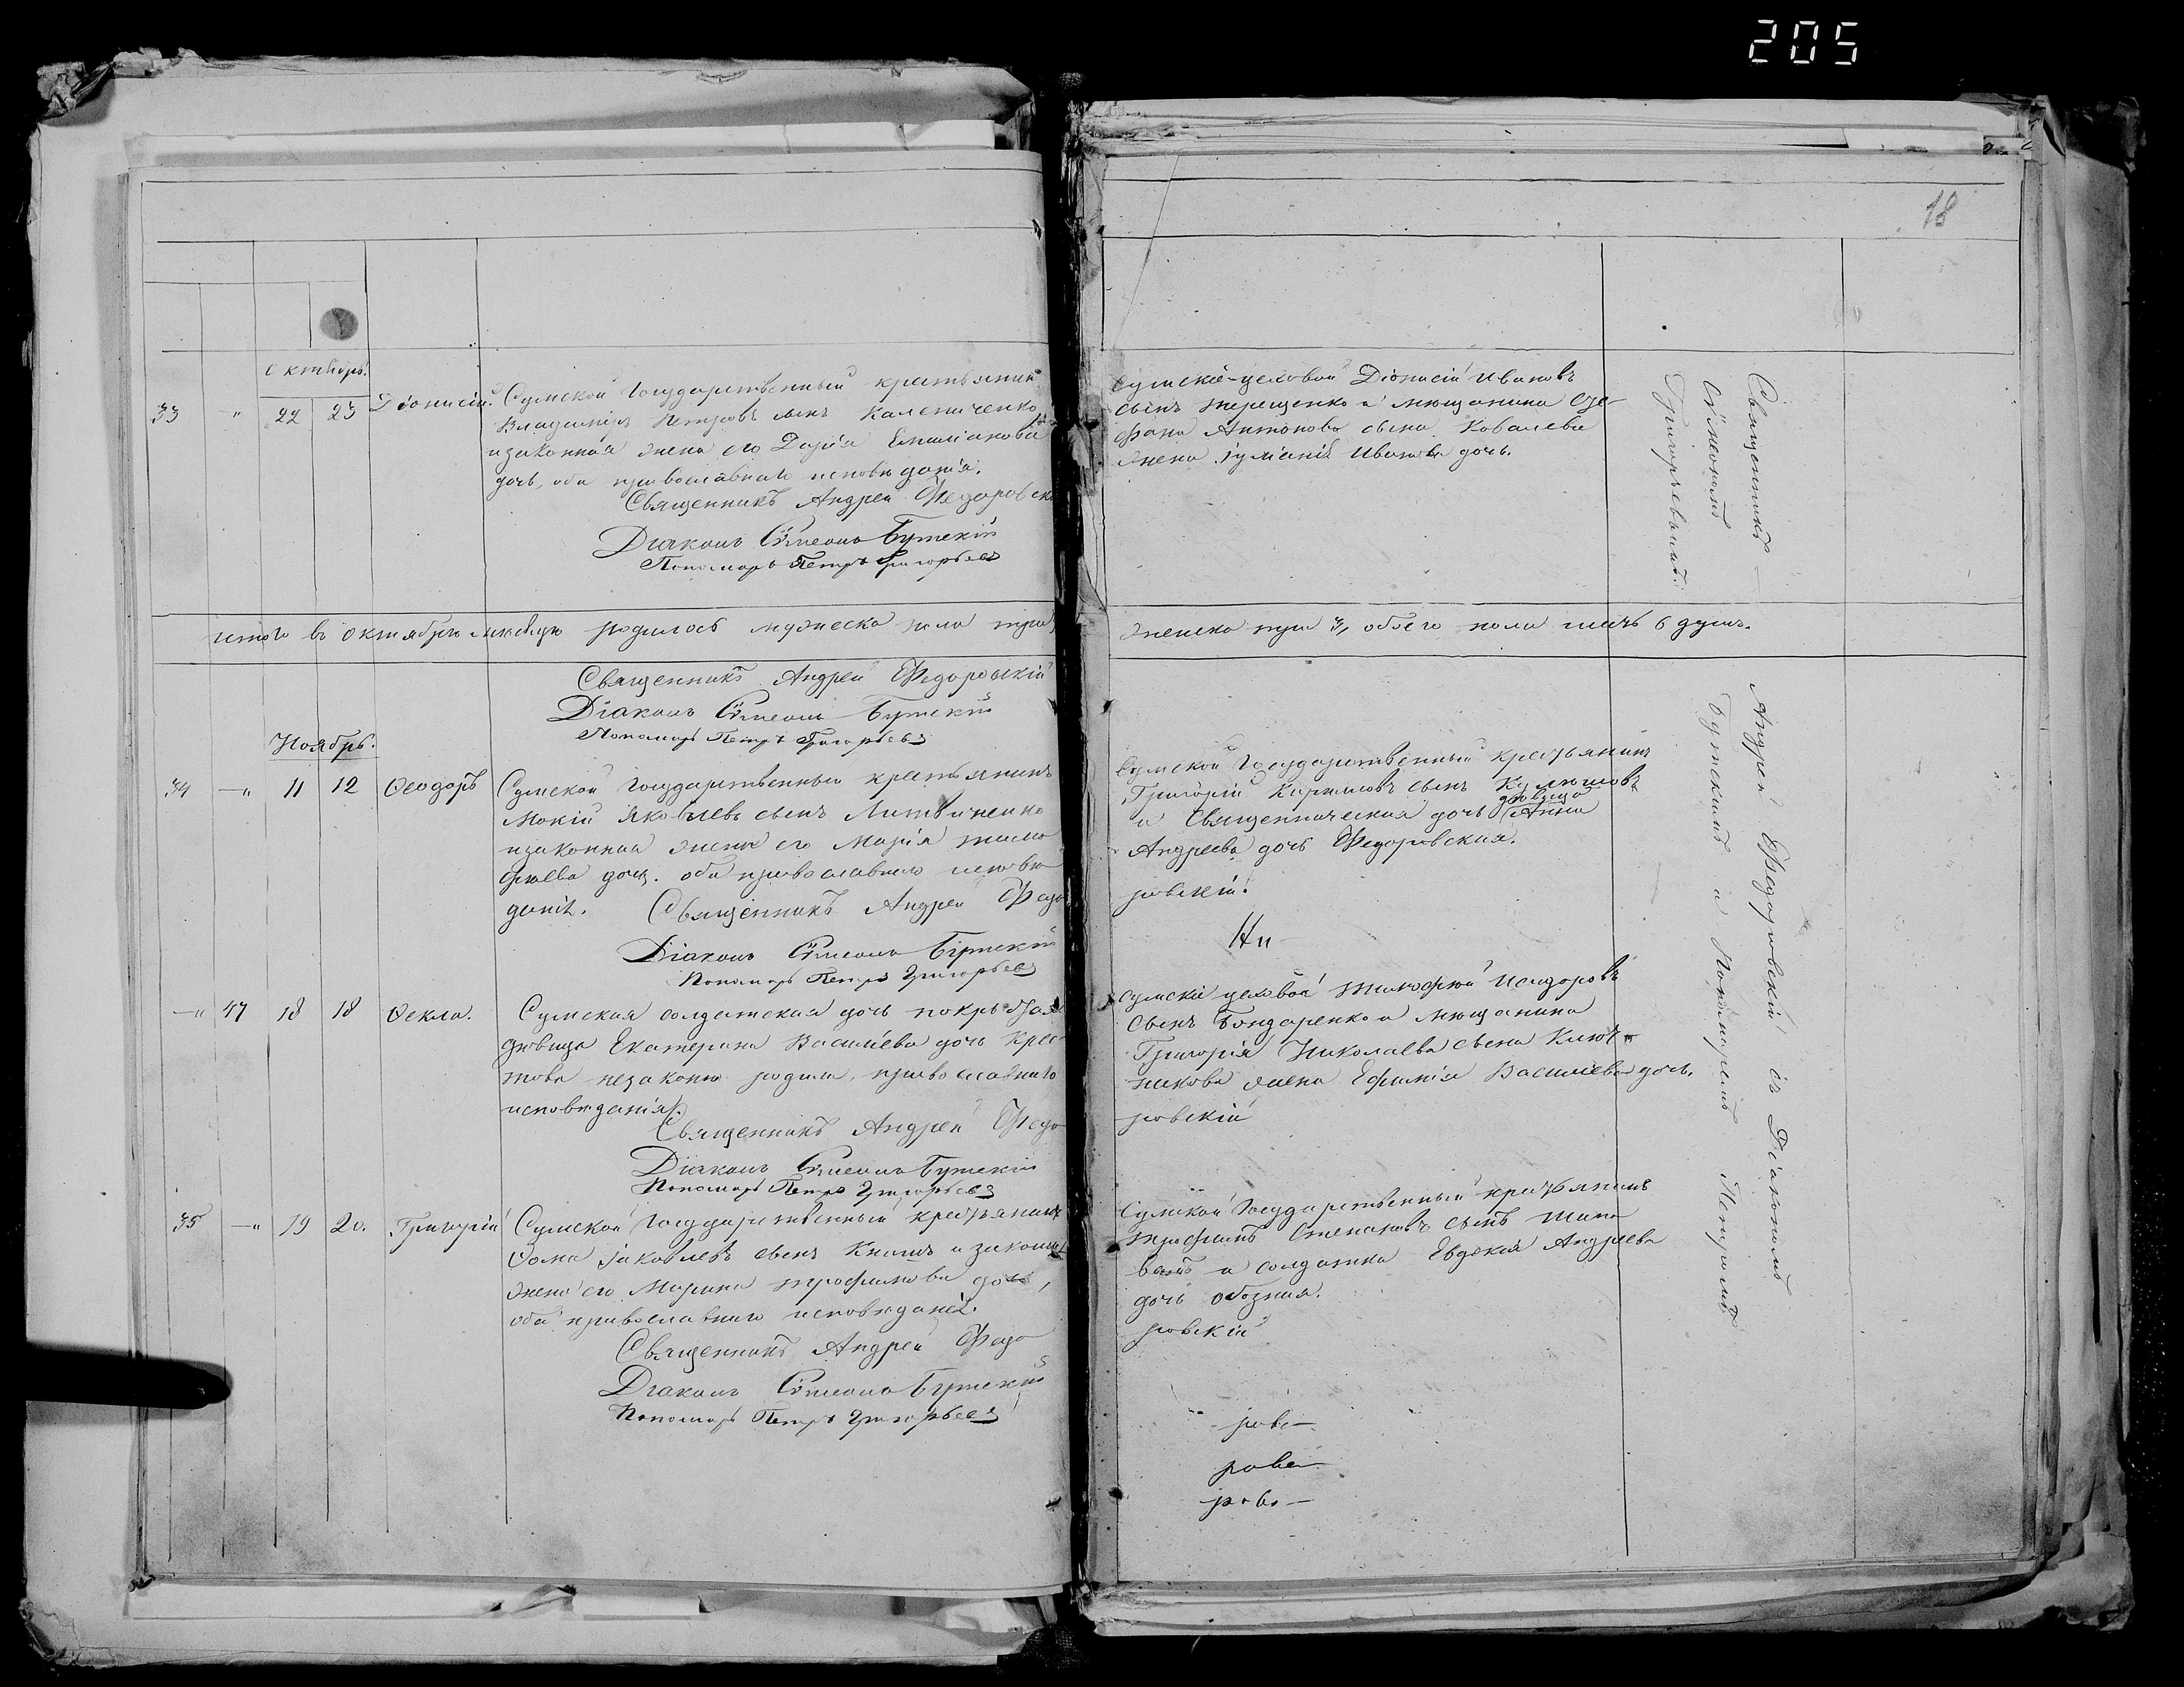 205
18
Октябрь.
33 " 22 23 Діонисій.
Сумской Государственный крестьянин
Владиміръ Петровъ сынъ Калениченко
и законная жена его Дарія Емиліанова
дочь, оба православнаго исповѣданія.
Священникъ Андрей Федоровскі
Діаконъ Сѵмеонъ Бутскій
Пономарь Петръ Григорьевъ
Сумскіе: цеховой Діонисій Ивановъ
сынъ Терещенко и мѣщанина Сте-
фана Антонова сына Ковалева
жена Іуліанія Иванова дочь.
Священникъ
Сѵмеономъ
Григорьевымъ.
Итого въ Октябрѣ мѣсяцѣ родилось мужеска пола три
женска три 3, обоего пола шесть 6 душъ.
Священникъ Андрей Федоровскій
Діаконъ Сѵмеонъ Бутскій
Пономарь Петръ Григорьевъ
Ноябрь.
34 —" 11 12 Ѳеодоръ
Сумской Государственный крестьянинъ
Мокій Яковлевъ сынъ Литвиненко
и законная жена его Марія Тимо
фѣева дочь. оба православнаго исповѣ
данія. Священникъ Андрей Федо
Діаконъ Сѵмеонъ Бутскій
Пономарь Петръ Григорьевъ
Сумской Государственный крестьянинъ
Григорій Карповъ сынъ
дѣвица
и Священническая дочь Анна
Андреева дочь Федоровская.
ровскій.
—" 47 18 18 Ѳекла.
Сумская солдатская дочь
дѣвица Екатерина Васильева дочь Крес
това незаконно родила, православнаго
исповѣданія.
Священникъ Андрей Федо
Діаконъ Сѵмеонъ Бутскій
Пономарь Петръ Григорьевъ
Сумскіе цеховой Тимофей Исидоровъ
сынъ Бондаренко и мѣщанина
Григорія Николаева сына Ключ
никова жена Ефимія Васильева дочь.
ровскій
35 —" 19 20. Григорій
Сумской Государственный крестьянинъ
Ѳома Іаковлевъ сынъ Книшъ и законная
жена его Марина Трофимова дочь,
оба православнаго исповѣданія.
Священникъ Андрей Федо
Діаконъ Сѵмеонъ Бутскій
Пономарь Петръ Григорьевъ
Сумской Государственный крестьянинъ
Трофимъ Степановъ сынъ Шапо
валъ и солдатка Евдокія Андреева
дочь Обозная.
ровскій
рово—
рово—
рово—
Андрей Федоровскій съ Діакономъ
Бутскимъ и Пономаремъ Петромъ